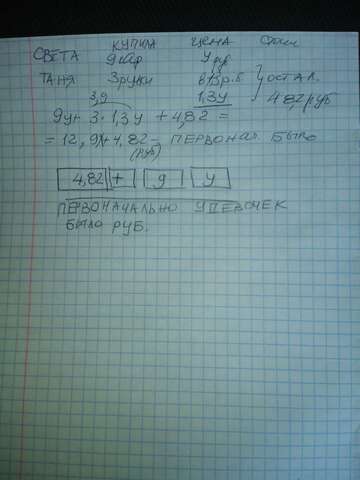 КУПИЛА ЦЕНА
СВЕТА 9 кар У руб
ТАНЯ 3 ручки В 1,3 р. б ОСТАЛ.
3,9 1,3У 4,82 руб
9у+ 3·1,3У + 4,82 =
= 12,9У+4,82 - ПЕРВОНАЧ. БЫЛО
(руб)
4,82 + 9 У
ПЕРВОНАЧАЛЬНО У ДЕВОЧЕК
БЫЛО РУБ.